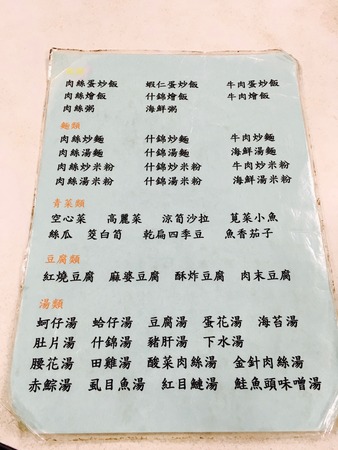 肉絲蛋炒飯 蝦仁蛋炒飯 牛肉蛋炒飯
肉絲燴飯 什錦燴飯 牛肉燴飯
肉絲粥 什錦粥 海鮮粥
麵類
肉絲炒麵 什錦炒麵 牛肉炒麵
肉絲湯麵 什錦湯麵 海鮮湯麵
肉絲炒米粉 什錦炒米粉 牛肉炒米粉
肉絲湯米粉 什錦湯米粉 海鮮湯米粉
青菜類
空心菜 高麗菜 涼筍沙拉 莧菜小魚
絲瓜 茭白筍 乾扁四季豆 魚香茄子
豆腐類
紅燒豆腐 麻婆豆腐 酥炸豆腐 肉末豆腐
湯類
蚵仔湯 蛤仔湯 豆腐湯 蛋花湯 海苔湯
肚片湯 什錦湯 豬肝湯 下水湯
腰花湯 田雞湯 酸菜肉絲湯 金針肉絲湯
赤鯮湯 虱目魚湯 紅目鰱湯 鮭魚頭味噌湯